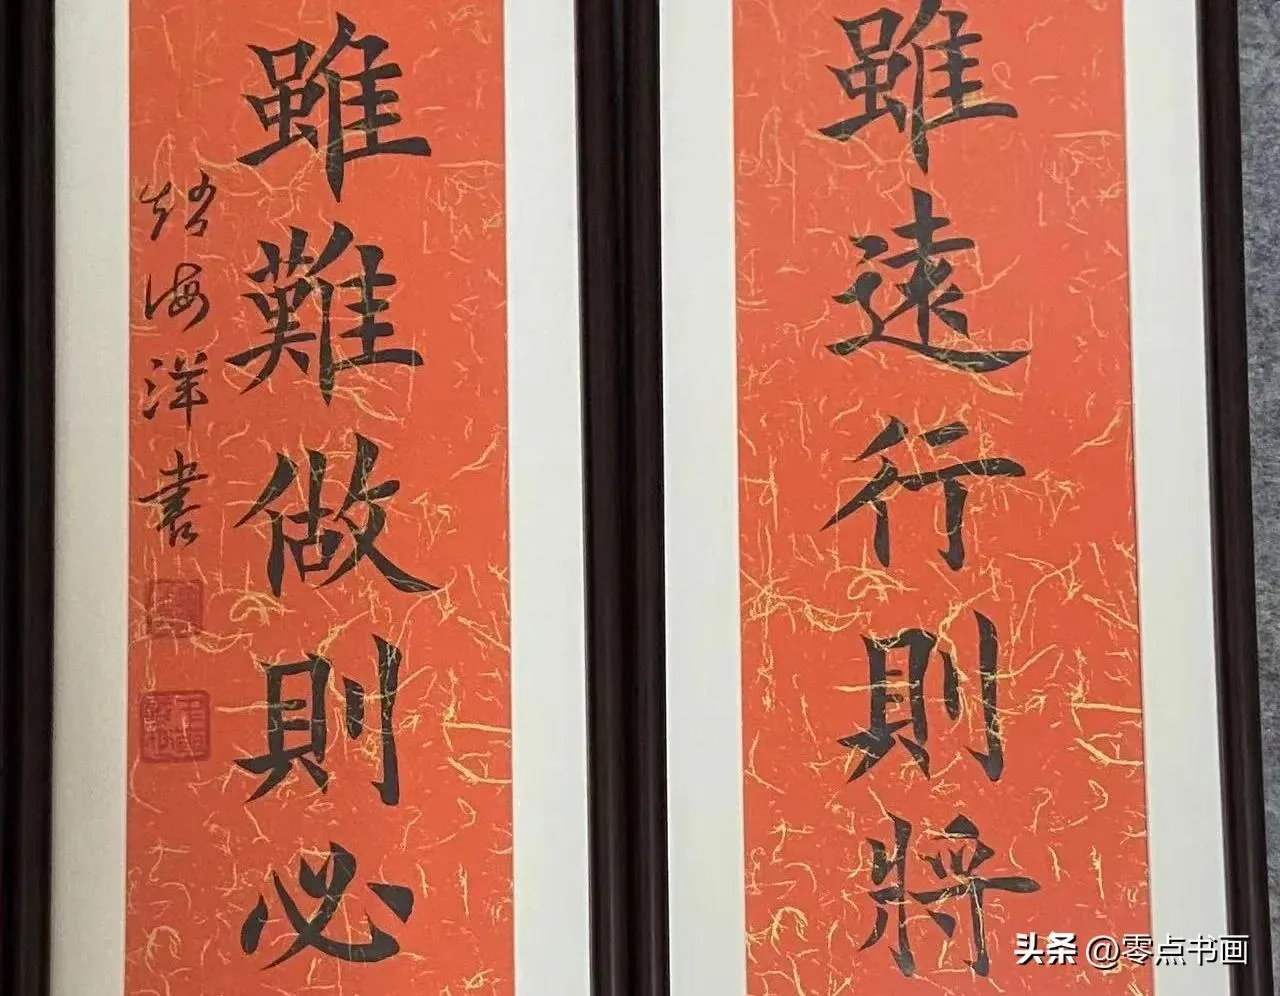 雖遠行則將
雖難做則必
海洋書
头条 @零点书画